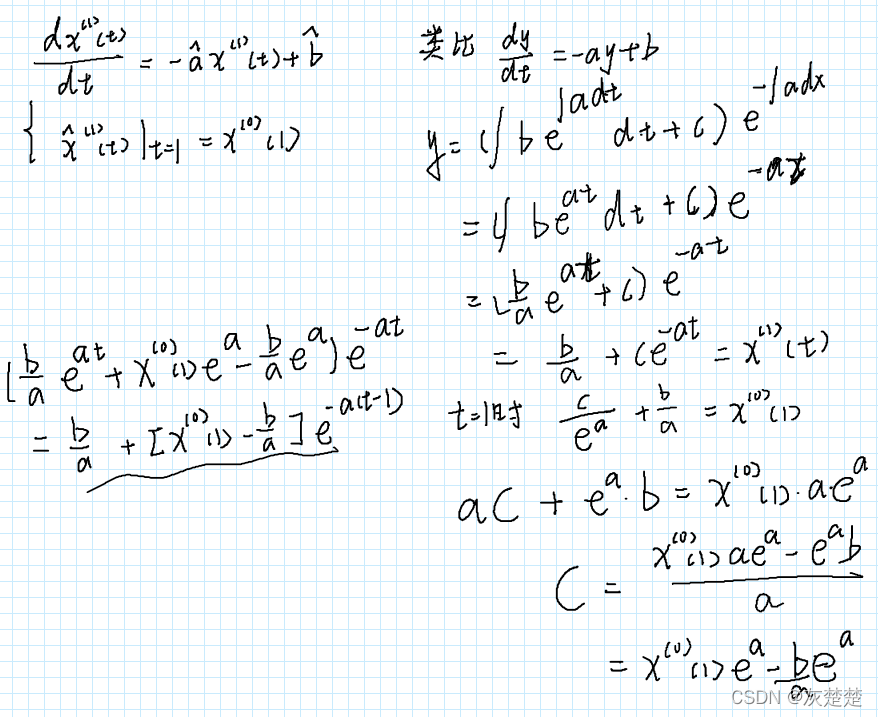 dx⁽¹⁾(t)/dt = -âx⁽¹⁾(t)+b̂
{ x̂⁽¹⁾(t)|t=1 = x⁽⁰⁾(1)
类比 dy/dt = -ay+b
y = (∫be^∫adt dt + C) e^-∫adx
= (∫be^at dt + C) e^-at
= (b/a e^at + C) e^-at
= b/a + Ce^-at = x⁽¹⁾(t)
t=1时 C/e^a + b/a = x⁽⁰⁾(1)
aC + e^a·b = x⁽⁰⁾(1)·a·e^a
C = (x⁽⁰⁾(1)ae^a - e^a b)/a
= x⁽⁰⁾(1)e^a - b/a e^a
[b/a e^at + x⁽⁰⁾(1)e^a - b/a e^a] e^-at
= b/a + [x⁽⁰⁾(1) - b/a] e^-a(t-1)
CSDN @灰楚楚